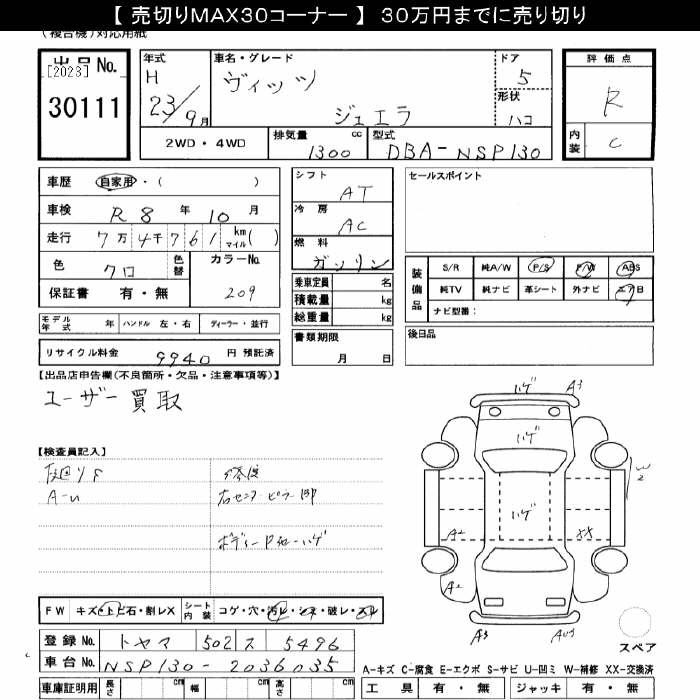 【 売切りMAX30コーナー 】 30万円までに売り切り
(複合機)対応用紙
出品No.
[2023]
30111
年式
H
23/9月
車名・グレード
ヴィッツ
ジュエラ
ドア
5
形状
ハコ
評価点
R
内装
C
2WD・4WD
排気量
1300 cc
型式
DBA-NSP130
車歴 自家用・( )
車検 R 8 年 10 月
走行 7万 4千 7 6 1 km マイル( )
色 クロ 色替
カラーNo. 209
保証書 有・無
シフト
AT
冷房
AC
燃料
ガソリン
乗車定員 名
積載量 kg
総重量 kg
書類期限
月 日
セールスポイント
装備品
S/R 純A/W P/S P/W ABS
純TV 純ナビ 革シート 外ナビ エアB
ナビ型番:
後日品
モデル年式 年 ハンドル 左・右 ディーラー・並行
リサイクル料金 9940 円 預託済
【出品店申告欄(不良箇所・欠品・注意事項等)】
ユーザー買取
【検査員記入】
A-U
右センターピラー
ボディー ハゲ
ハゲ A3
ハゲ
W2
ハゲ
A2 XX
A2
A3
FW キズ・トビ石・割レX シート内装 コゲ・穴・汚レ・シミ・破レ・スレ
登録No. トヤマ 502 ス 5496
車台No. NSP130-2036035
車庫証明用 長さ cm 幅 cm 高さ cm
スペア
A-キズ C-腐食 E-エクボ S-サビ U-凹ミ W-補修 XX-交換済
工具 有・無 ジャッキ 有・無